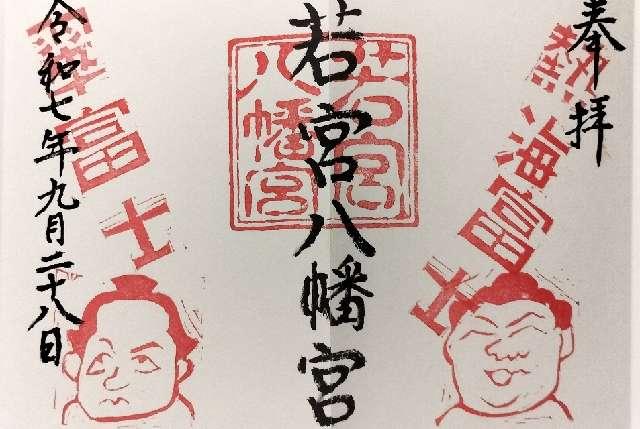 奉拝
熱海富士
若宮八幡宮
若宮
八幡宮
富士
令和七年九月二十八日